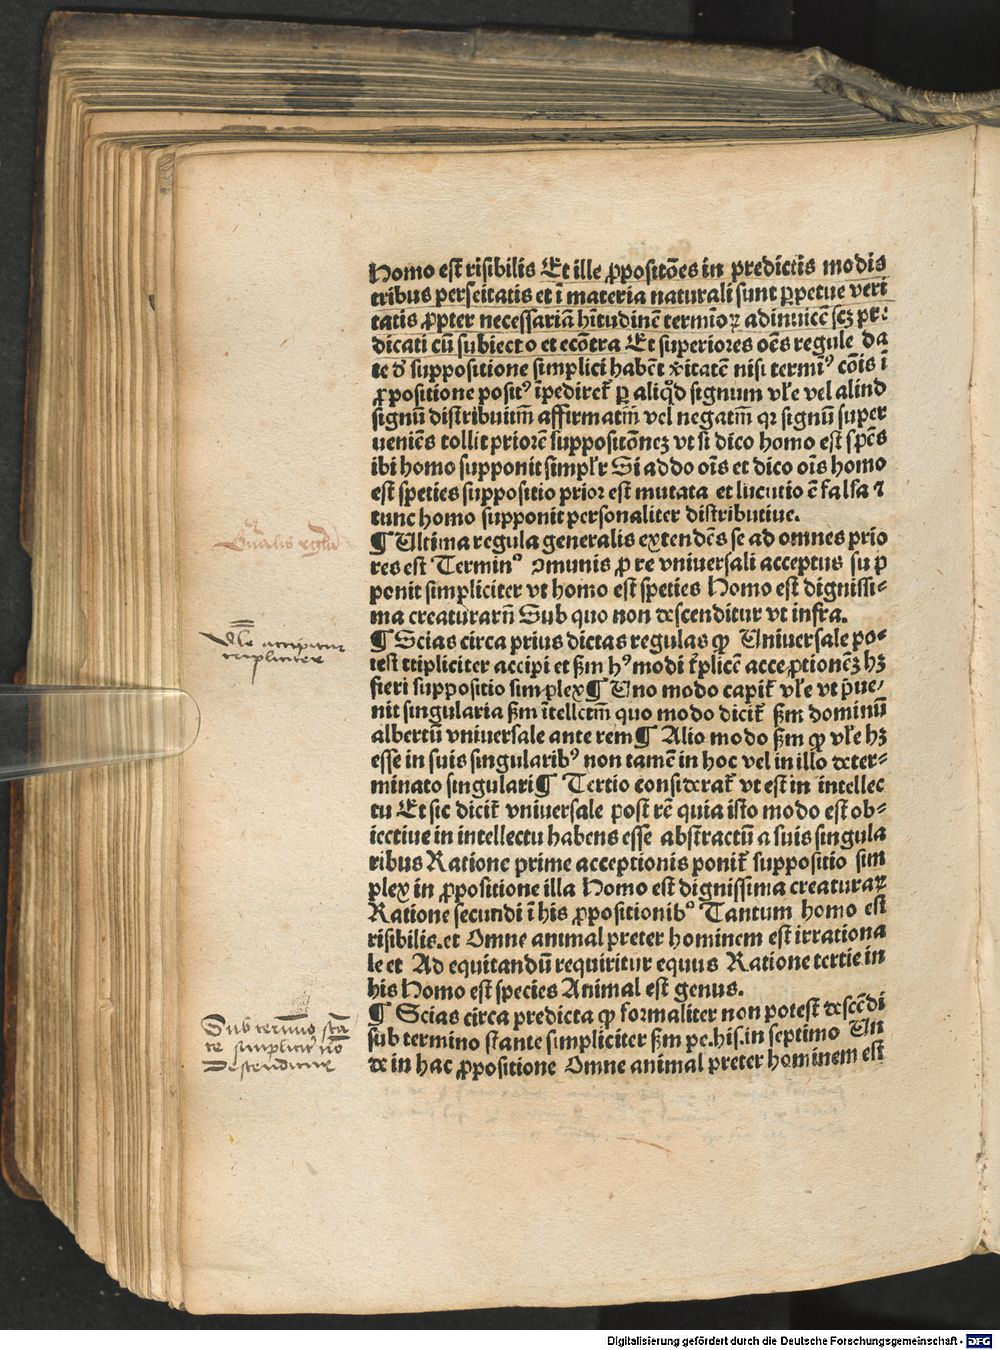 Homo est risibilis Et ille ꝓpositiões in predictis modis
tribus perseitatis et ĩ materia naturali sunt ꝑpetue veri
tatis ꝓpter necessariã hĩtudinẽ termĩoꝝ adinuicẽ scꝫ pre
dicati cũ subiecto et ecõtra Et superiores oẽs regule da
te ď suppositione simplici habẽt ꝟitatẽ nisi termiꝰ cõis ĩ
ꝓpositione positꝰ ĩpediret᷑ ꝑ aliqḋ signum vĺe vel aliud
signũ distribuitiũ affirmatiũ vel negatiũ qꝛ signũ super
ueniẽs tollit priorẽ suppositõneꝫ vt si dico homo est spẽs
ibi homo supponit simpĺr Si addo oĩs et dico oĩs homo
est speties suppositio prior est mutata et lucutio ẽ falsa ⁊
tunc homo supponit personaliter distributiue.
¶ Ultima regula generalis extendẽs se ad omnes prio
res est Terminꝰ ꝯmunis ꝓ re vniuersali acceptus su p
ponit simpliciter vt homo est speties Homo est dignissi⸗
ma creaturarũ Sub quo non descenditur vt infra.
¶ Scias circa prius dictas regulas ꝙ Uniuersale po⸗
test ttipliciter accipi et ẞm hꝰmodi t᷑plicẽ acceptionẽꝫ hꝫ
fieri suppositio simplex ¶ Uno modo capit᷑ vĺe vt p̃ue⸗
nit singularia ẞm ĩtellctm̃ quo modo dicit᷑ ẞm dominũ
albertũ vniuersale ante rem ¶ Alio modo ẞm ꝙ vĺe hꝫ
esse in suis singularibꝰ non tamẽ in hoc vel in illo deter⸗
minato singulari ¶ Tertio considerat᷑ vt est in intellec
tu Et sic dicit᷑ vniuersale post rẽ quia isto modo est ob⸗
iectiue in intellectu habens esse abstractũ a suis singula
ribus Ratione prime acceptionis ponit᷑ suppositio sim
plex in ꝓpositione illa Homo est dignissima creaturaꝝ
Ratione secundi ĩ his ꝓpositionibꝰ Tantum homo est
risibilis.et Omne animal preter hominem est irrationa
le et Ad equitandũ requiritur equus Ratione tertie in
his Homo est species Animal est genus.
¶ Scias circa predicta ꝙ formaliter non potest descẽdi
sub termino stante simpliciter ẞm pe.his.in septimo Un
de in hac ꝓpositione Omne animal preter hominem est
Gñalis regula
Vĺe accipitur
tripliciter
Sub termĩo stã
te simplicitᷣ nõ
Descenditur
Digitalisierung gefördert durch die Deutsche Forschungsgemeinschaft - DFG